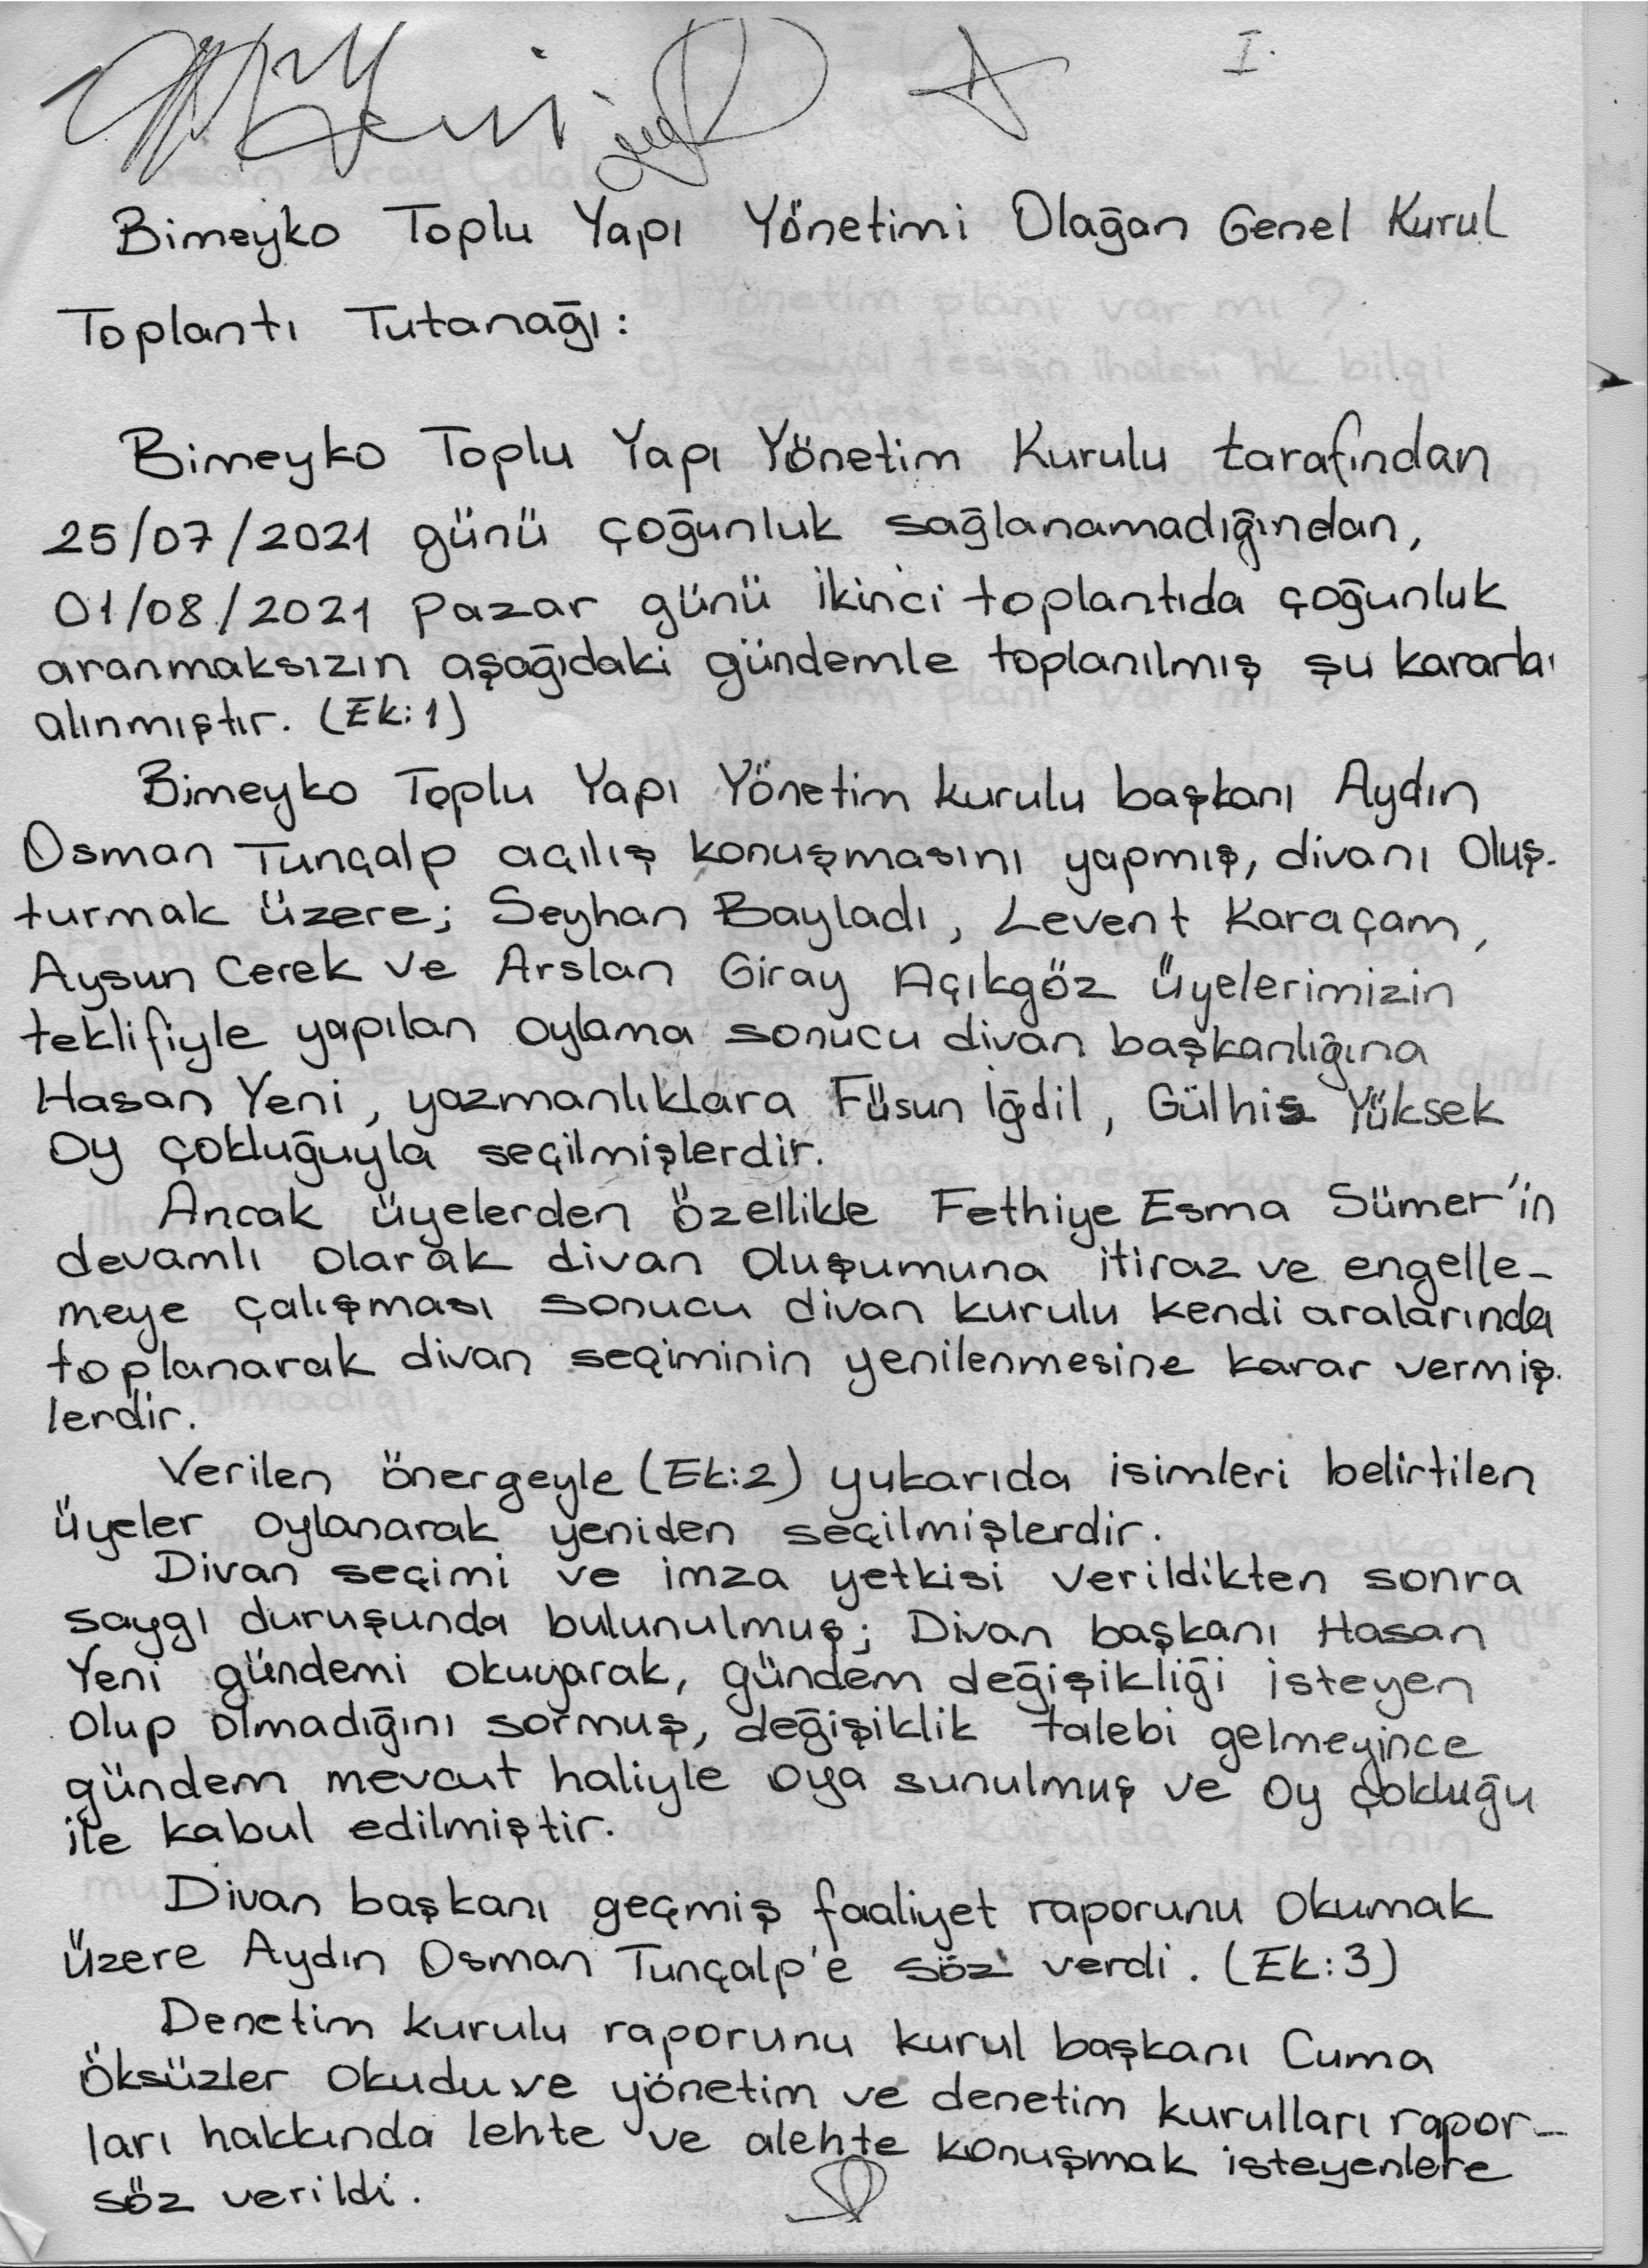 I.
Bimeyko Toplu Yapı Yönetimi Olağan Genel Kurul
Toplantı Tutanağı:
Bimeyko Toplu Yapı Yönetim Kurulu tarafından
25/07/2021 günü çoğunluk sağlanamadığından,
01/08/2021 Pazar günü ikinci toplantıda çoğunluk
aranmaksızın aşağıdaki gündemle toplanılmış şu
alınmıştır. (Ek:1)
Bimeyko Toplu Yapı Yönetim kurulu başkanı Aydın
Osman Tunçalp açılış konuşmasını yapmış, divanı Oluş-
turmak üzere; Seyhan Bayladı, Levent Karaçam,
Aysun Cerek ve Arslan Giray Açıkgöz üyelerimizin
teklifiyle yapılan oylama sonucu divan başkanlığına
Hasan Yeni, yazmanlıklara Füsun İğdil, Gülhis Yüksek
Oy çokluğuyla seçilmişlerdir.
Ancak üyelerden özellikle Fethiye Esma Sümer'in
devamlı olarak divan oluşumuna itiraz ve engelle-
meye çalışması sonucu divan kurulu kendi aralarında
toplanarak divan seçiminin yenilenmesine karar vermiş-
lerdir.
Verilen önergeyle (Ek:2) yukarıda isimleri belirtilen
üyeler oylanarak yeniden seçilmişlerdir.
Divan seçimi ve imza yetkisi verildikten sonra
saygı duruşunda bulunulmuş; Divan başkanı Hasan
Yeni gündemi okuyarak, gündem değişikliği isteyen
Olup olmadığını sormuş, değişiklik talebi gelmeyince
gündem mevcut haliyle oya sunulmuş ve Oy çokluğu
ile kabul edilmiştir.
Divan başkanı geçmiş faaliyet raporunu Okumak
üzere Aydın Osman Tunçalp'e söz verdi. (Ek:3)
Denetim kurulu raporunu kurul başkanı Cuma
Öksüzler Okudu ve yönetim ve denetim kurulları rapor-
ları hakkında lehte ve alehte konuşmak isteyenlere
söz verildi.